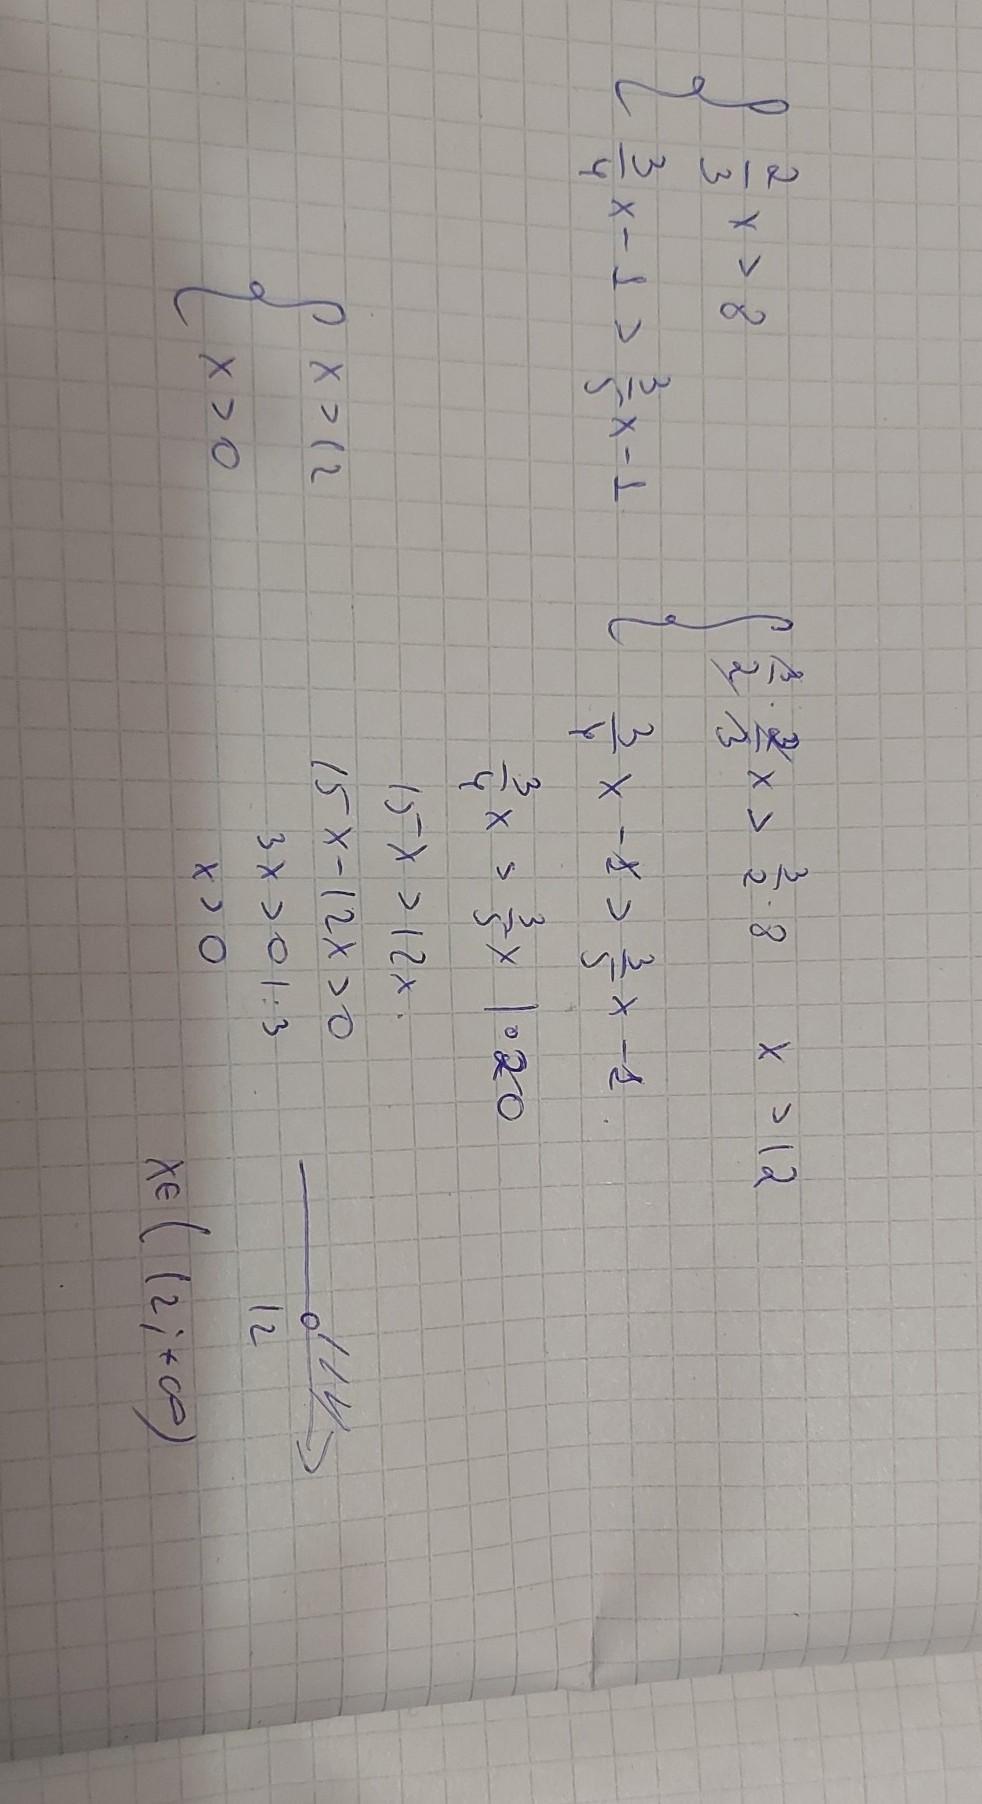 { 2/3 x > 8
3/4 x - 1 > 3/5 x - 1
{ 3/2 · 2/3 x > 3/2 · 8 x > 12
3/4 x - 1 > 3/5 x - 1.
3/4 x > 3/5 x | · 20
15x > 12x.
15x - 12x > 0
3x > 0 | : 3
x > 0
{ x > 12
x > 0
12
x∈(12; +∞)